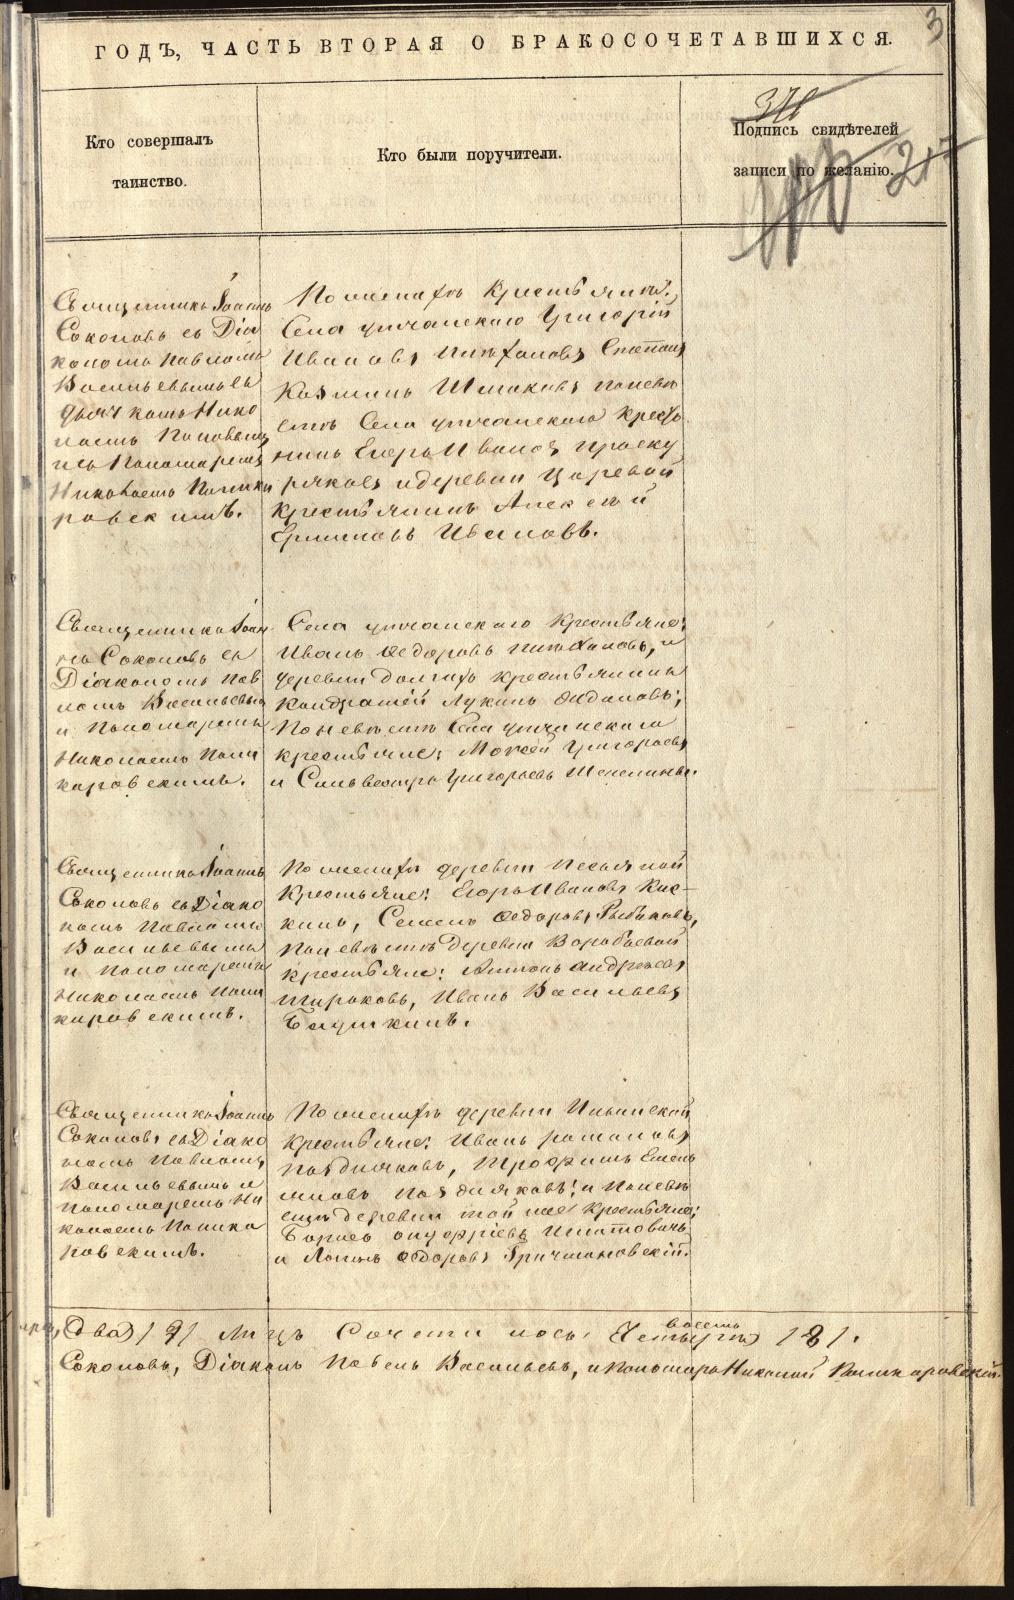 3
ГОДЪ, ЧАСТЬ ВТОРАЯ О БРАКОСОЧЕТАВШИХСЯ.
Кто совершалъ
таинство.
Кто были поручители.
Подпись свидѣтелей
записи по желанію.
Священникъ Іоаннъ
Соколовъ съ Діа
кономъ Павломъ
Васильевымъ съ
дьячкомъ Нико
лаемъ Поповымъ
и съ Пономаремъ
Николаемъ Поликар
ровскимъ.
По женихѣ Крестьяния:
Села утчанскаго Григорій
Ивановъ Степанъ
Казминъ Шмаковъ по невѣ
стѣ Села утчанскаго Крестья
нинъ Егоръ Ивановъ Проску
ряковъ и деревни Царевой
Крестьянинъ Алексѣй
Ивановъ.
Священникъ Іоан
нъ Соколовъ съ
Діакономъ Пав
ломъ Васильевымъ
и Пономаремъ
Николаемъ Поли
каровскимъ.
Села утчанскаго Крестьяне:
Иванъ Ѳедоровъ и
деревни Крестьянинъ
Кондратій Лукинъ
По невѣстѣ Села утчанскаго
крестьяне: Моисей Григорьевъ
и Сильвестръ Григорьевъ
Священникъ Іоаннъ
Соколовъ съ Діако
номъ Павломъ
Васильевымъ
и Пономаремъ
Николаемъ Поли
каровскимъ.
По женихѣ деревни Песьяной
Крестьяне: Егоръ Ивановъ Кис-
кинъ, Семенъ Ѳедоровъ Рыбаковъ,
По невѣстѣ деревни Воробьевой
крестьяне: Антонъ Андреевъ
Широковъ, Иванъ Васильевъ
Священникъ Іоаннъ
Соколовъ съ Діако
номъ Павломъ
Васильевымъ и
пономаремъ Ни
колаемъ Полика
ровскимъ.
По женихѣ деревни Ильинской
Крестьяне: Иванъ Романовъ
Поздняковъ, Трофимъ Емель
яновъ Поздняковъ; и По невѣ
стѣ деревни той же Крестьяне:
Борисъ Онуфріевъ
и Логинъ Ѳедоровъ
восемь
два) лицъ Сочеталось: Четыре) /8/.
Соколовъ, Діаконъ Павелъ Васильевъ, и Пономарь Николай Поликаровскій.